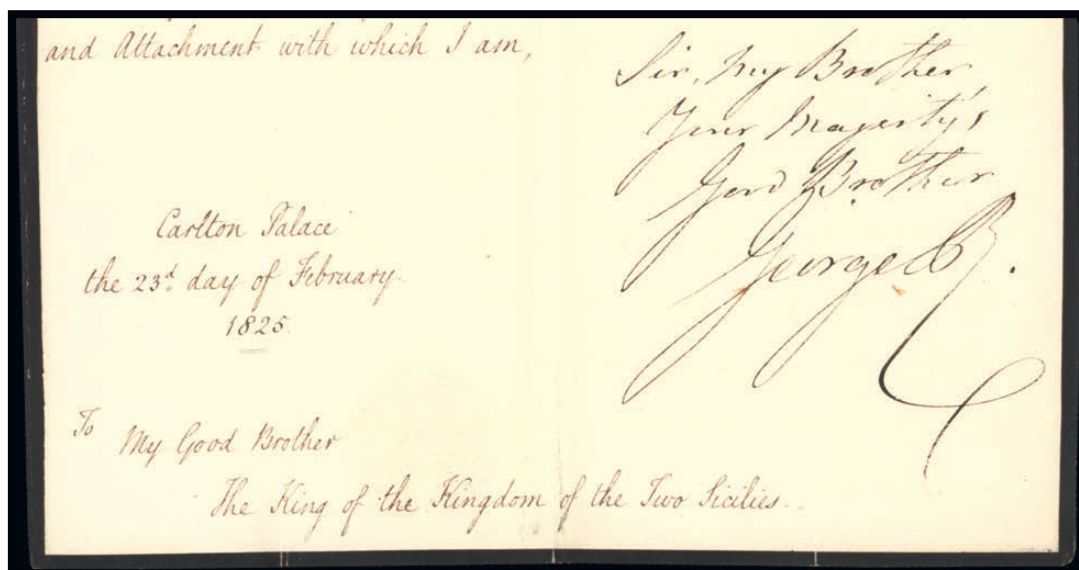 and Attachment with which I am,
Sir, My Brother,
Your Magesty's
Good Brother
George R.
Carlton Palace
the 23d. day of February.
1825.
To
My Good Brother
The King of the Kingdom of the Two Sicilies.